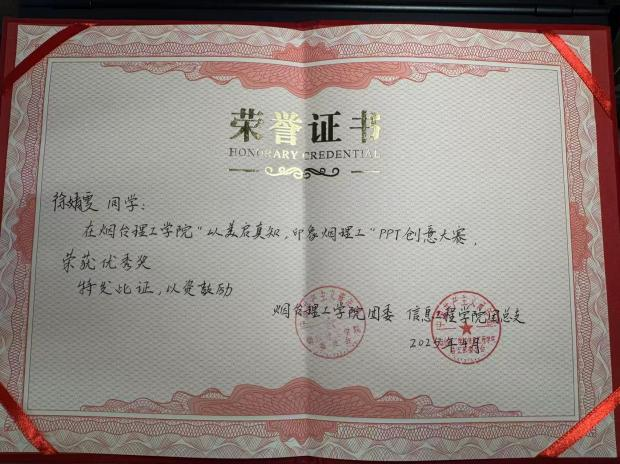 荣誉证书
HONORARY CREDENTIAL
同学:
在烟台理工学院“以美启真知,印象烟理工”PPT创意大赛,
荣获优秀奖
特发此证,以资鼓励
烟台理工学院团委 信息工程学院团总支